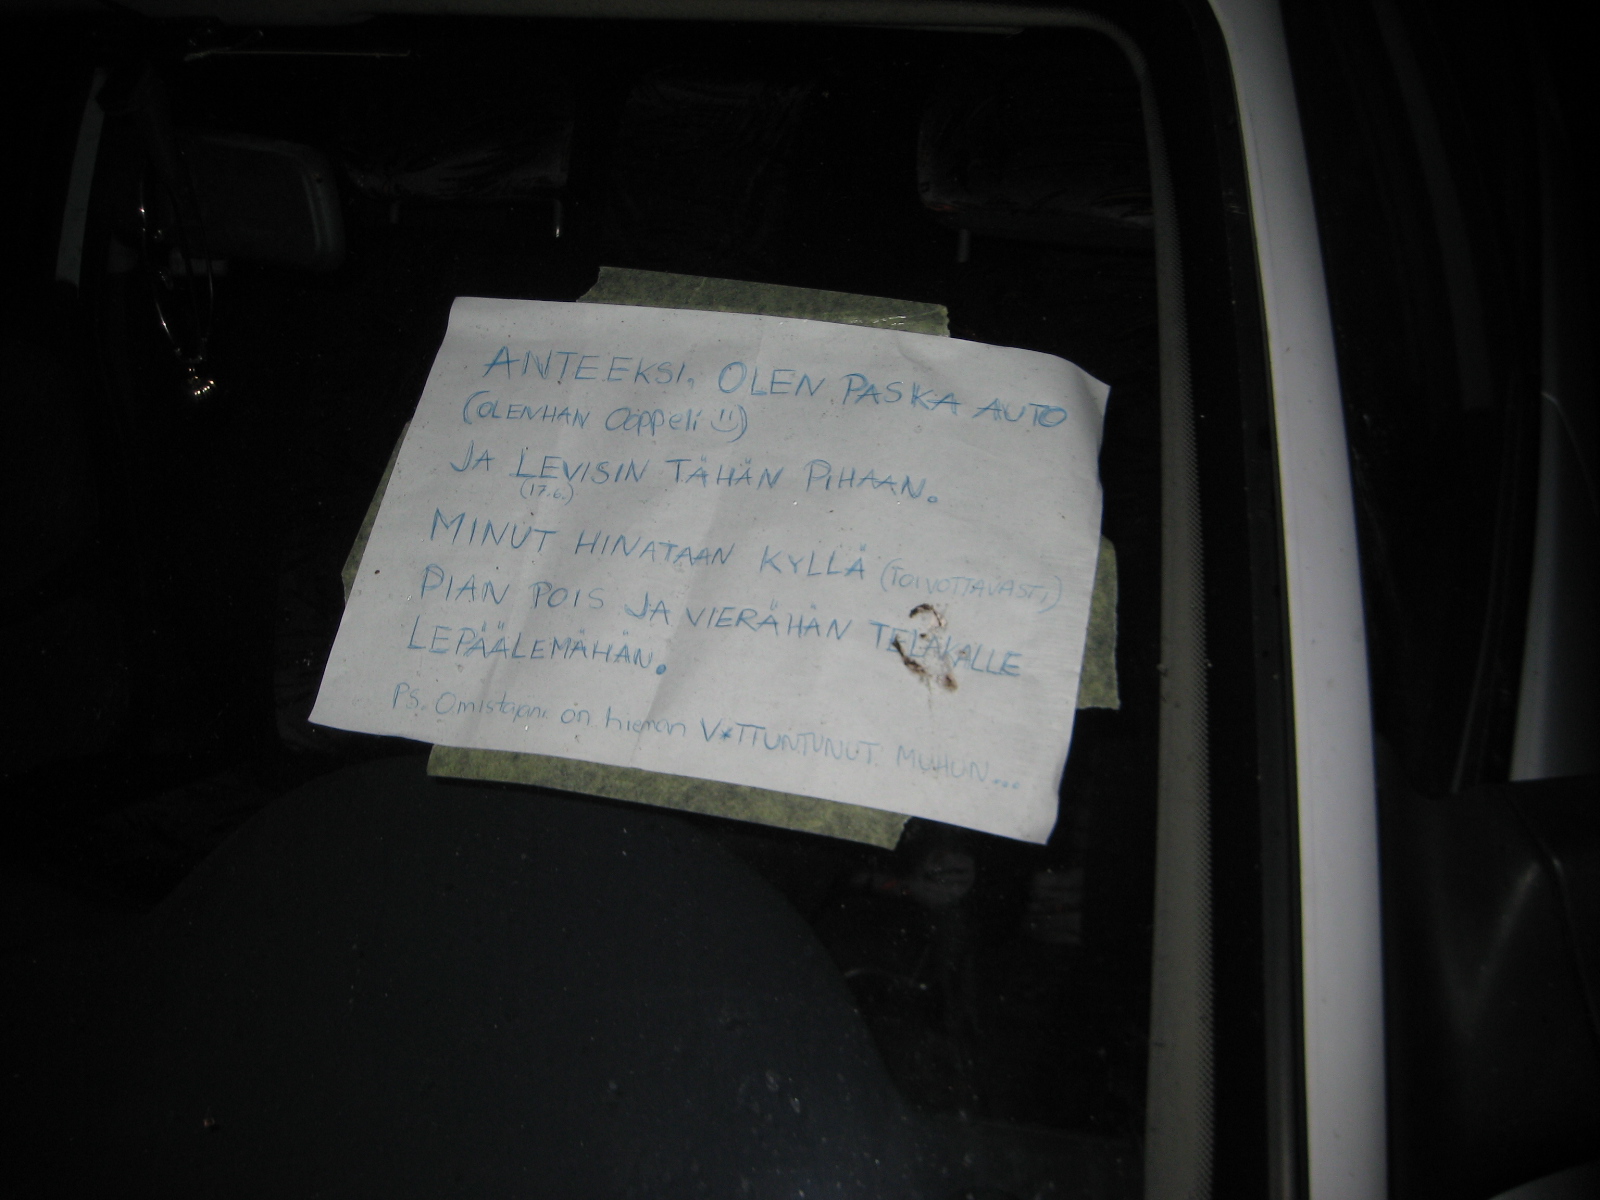 ANTEEKSI, OLEN PASKA AUTO
(OLENHAN Ooppeli :))
JA LEVISIN TÄHÄN PIHAAN.
(17.6.)
MINUT HINATAAN KYLLÄ (TOIVOTTAVASTI)
PIAN POIS JA VIERÄHÄN TELAKALLE
LEPÄÄLEMÄHÄN.
PS. Omistajani on hieman V*TTUNTUNUT MUHUN...